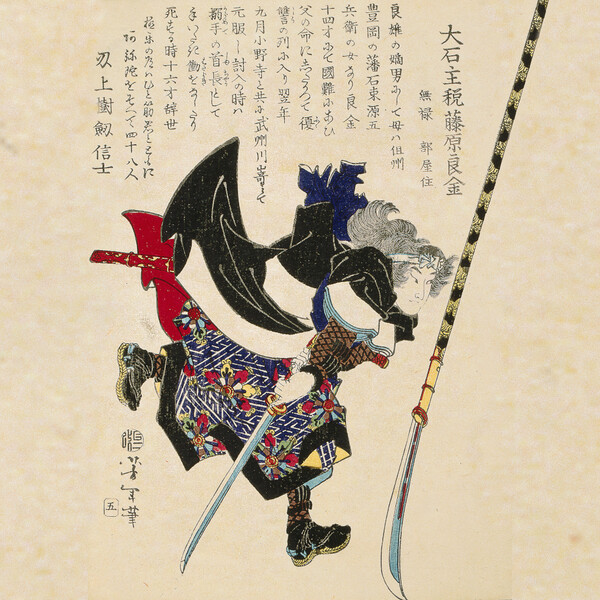 大石主税藤原良金
無禄 部屋住
良雄の嫡男にして母ハ但州
豊岡の藩石束源五
兵衛の女なり良金
十四才にて國難にあひ
父の命にしたがつて優
讐の列に入り翌年
九月小野寺と共に武州川嵜にて
元服し討入の時ハ
搦手の首長として
働をあらハし
死する時十六才辞世
極楽の道ハひと筋君とともに
阿弥陀をそへて四十八人
刃上樹劔信士
芳年筆
五